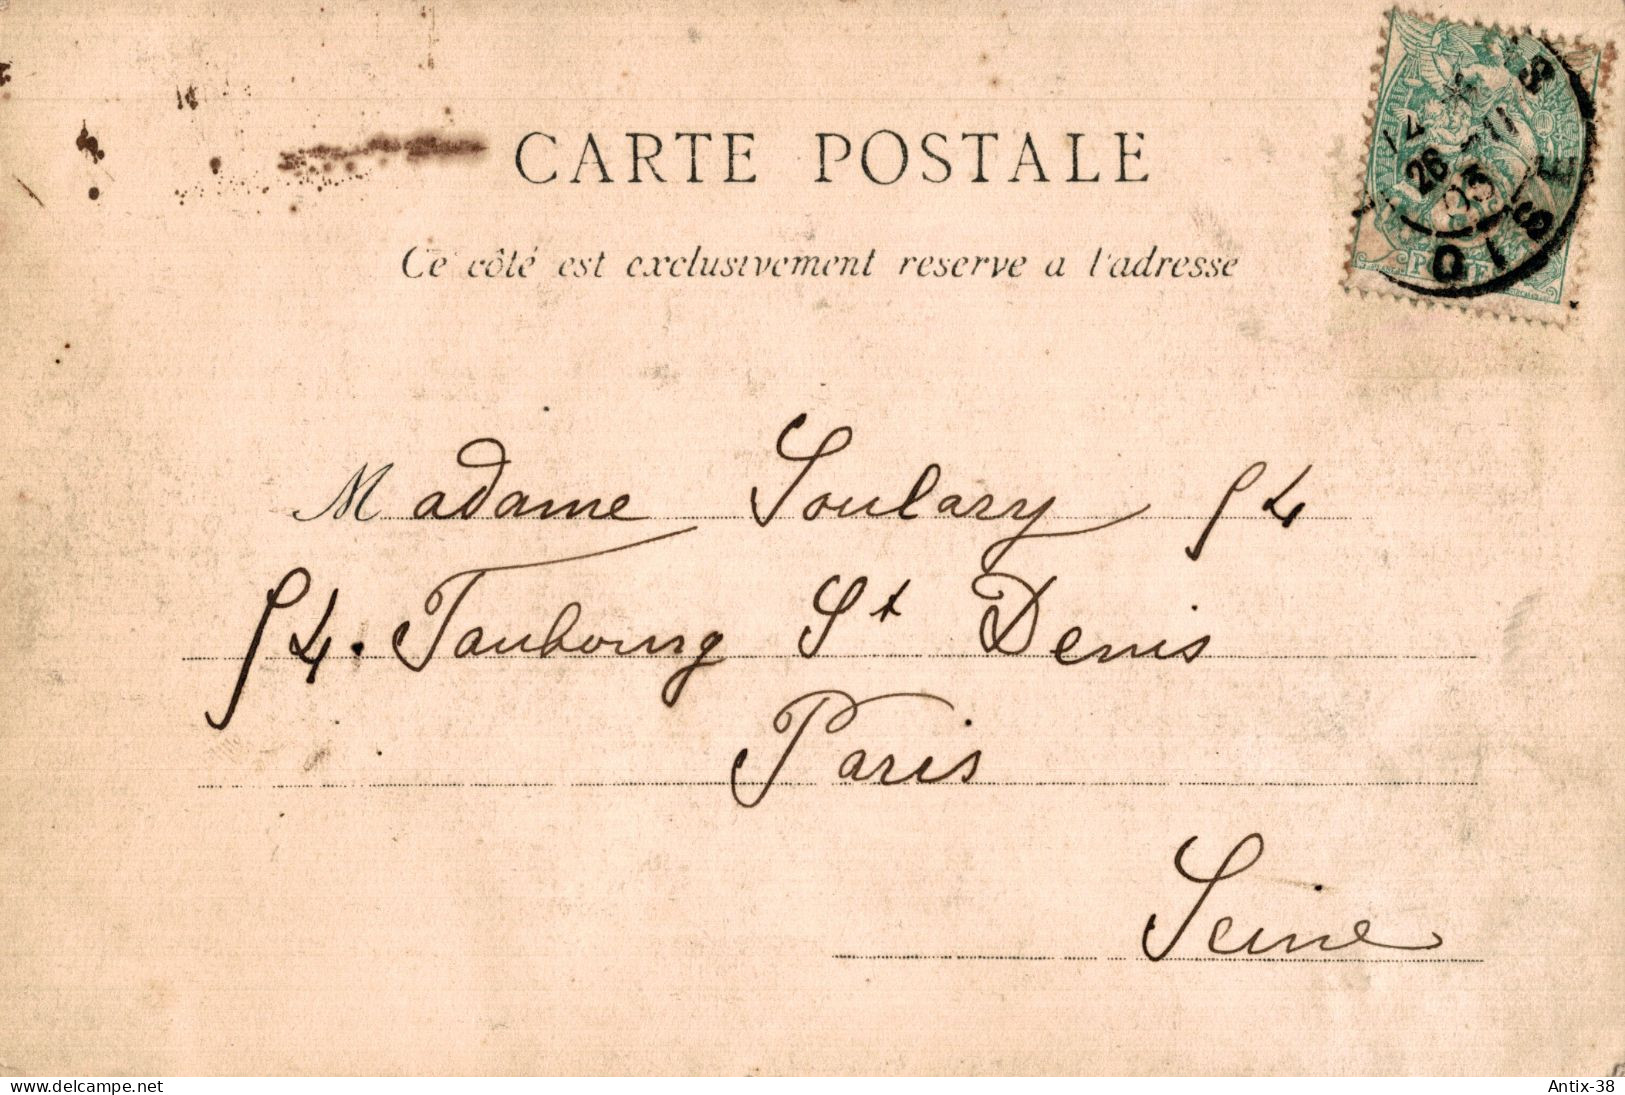 CARTE POSTALE
Ce côté est exclusivement reserve a l'adresse
26
03
OISE
POSTES
Madame Soulary 54
54. Faubourg St Denis
Paris
Seine
www.delcampe.net
Antix-38